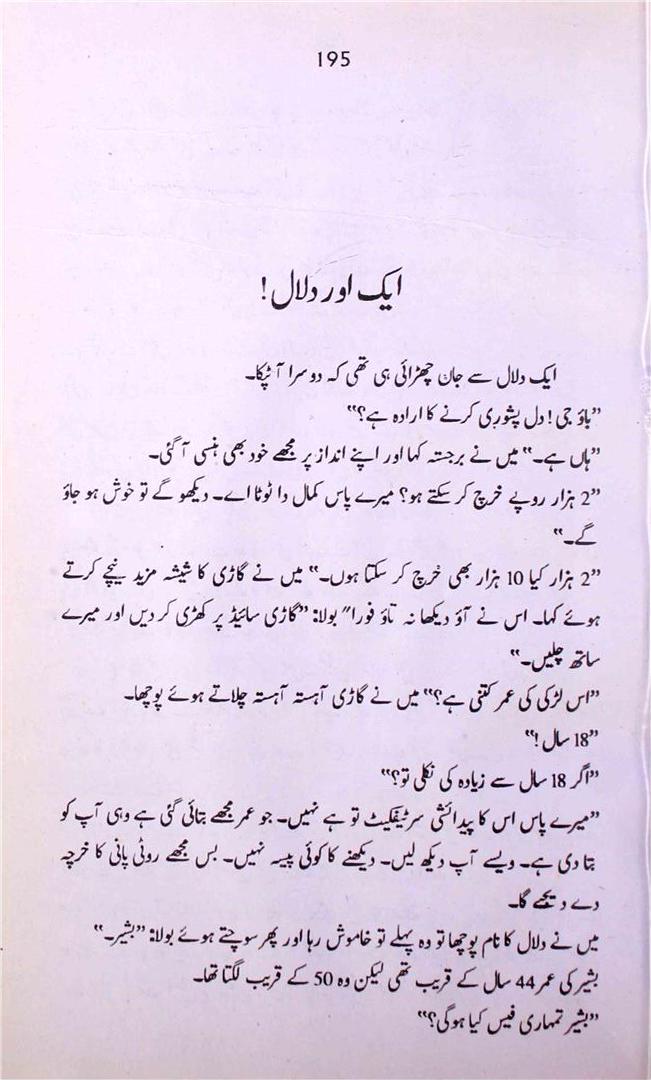 195
ایک اور دلال!
ایک دلال سے جان چھڑائی ہی تھی کہ دوسرا آ ٹپکا۔
”باؤ جی! دل پشوری کرنے کا ارادہ ہے؟“
”ہاں ہے۔“ میں نے برجستہ کہا اور اپنے انداز پر مجھے خود بھی ہنسی آ گئی۔
”2 ہزار روپے خرچ کر سکتے ہو؟ میرے پاس کمال دا ٹوٹا اے۔ دیکھو گے تو خوش ہو جاؤ
گے۔“
”2 ہزار کیا 10 ہزار بھی خرچ کر سکتا ہوں۔“ میں نے گاڑی کا شیشہ مزید نیچے کرتے
ہوئے کہا۔ اس نے آؤ دیکھا نہ تاؤ فورا″ بولا: ”گاڑی سائیڈ پر کھڑی کر دیں اور میرے
ساتھ چلیں۔“
”اس لڑکی کی عمر کتنی ہے؟“ میں نے گاڑی آہستہ آہستہ چلاتے ہوئے پوچھا۔
”18 سال!“
”اگر 18 سال سے زیادہ کی نکلی تو؟“
”میرے پاس اس کا پیدائشی سرٹیفکیٹ تو ہے نہیں۔ جو عمر مجھے بتائی گئی ہے وہی آپ کو
بتا دی ہے۔ ویسے آپ دیکھ لیں۔ دیکھنے کا کوئی پیسہ نہیں۔ بس مجھے روٹی پانی کا خرچہ
دے دیجئے گا۔
میں نے دلال کا نام پوچھا تو وہ پہلے تو خاموش رہا اور پھر سوچتے ہوئے بولا: ”بشیر۔“
بشیر کی عمر 44 سال کے قریب تھی لیکن وہ 50 کے قریب لگتا تھا۔
”بشیر تمہاری فیس کیا ہو گی؟“